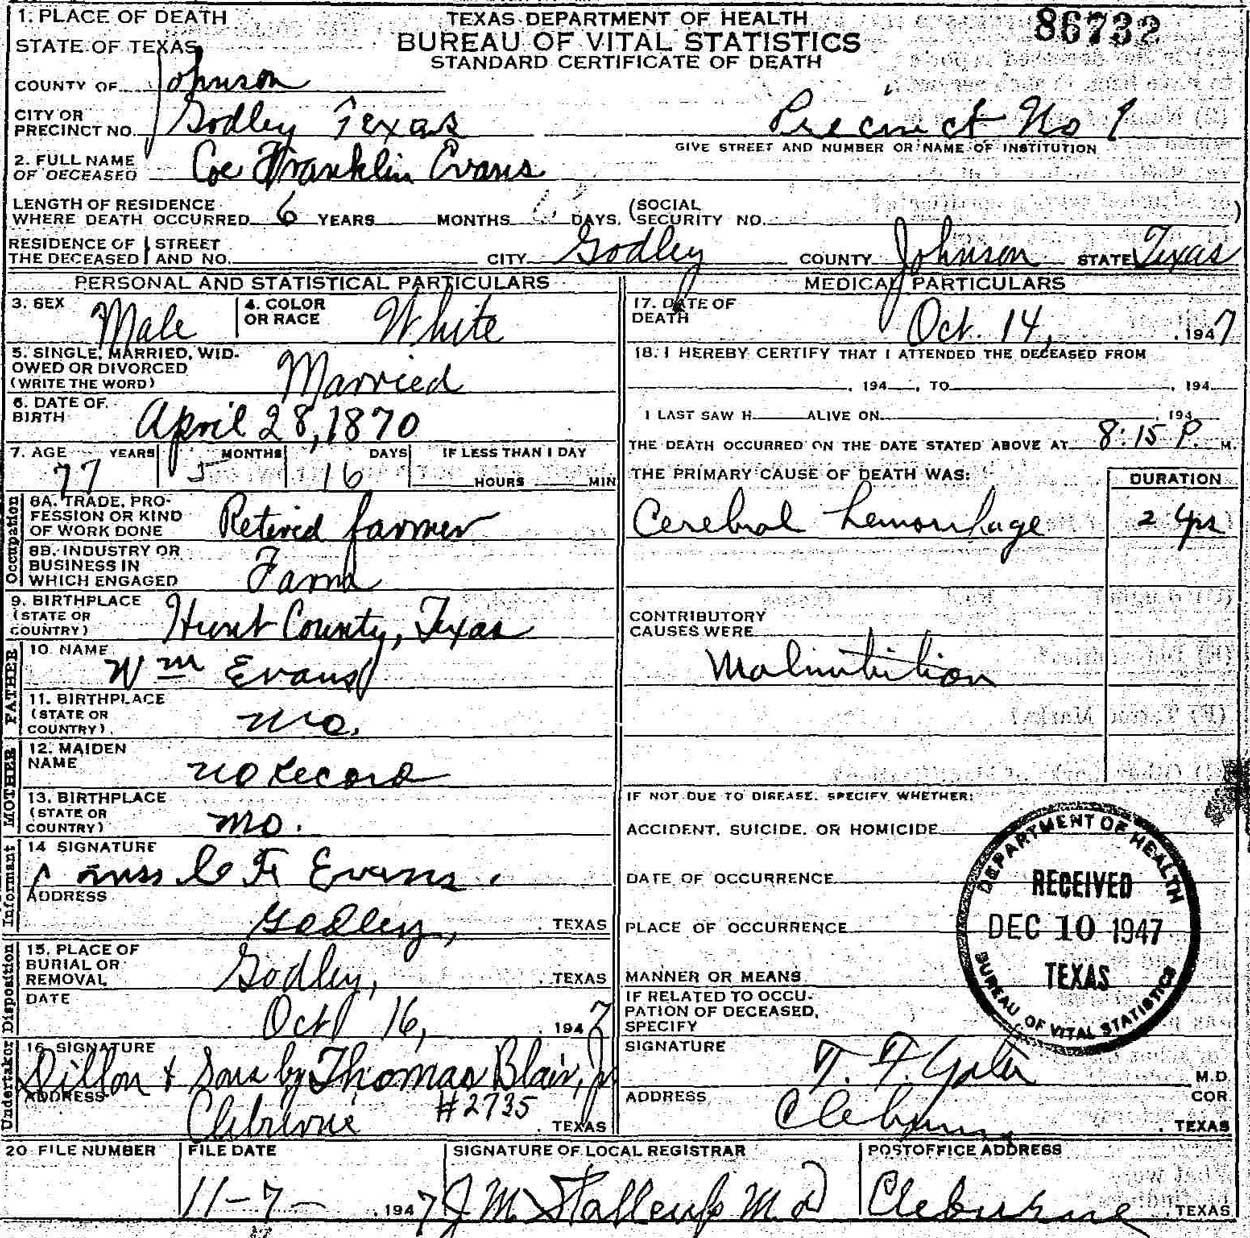 1. PLACE OF DEATH
STATE OF TEXAS
TEXAS DEPARTMENT OF HEALTH
BUREAU OF VITAL STATISTICS
STANDARD CERTIFICATE OF DEATH
86732
COUNTY OF Johnson
CITY OR PRECINCT NO. Godley Texas Precinct No 1
GIVE STREET AND NUMBER OR NAME OF INSTITUTION
2. FULL NAME OF DECEASED Coe Franklin Evans
LENGTH OF RESIDENCE WHERE DEATH OCCURRED 6 YEARS MONTHS DAYS. (SOCIAL SECURITY NO. )
RESIDENCE OF THE DECEASED STREET AND NO. CITY Godley COUNTY Johnson STATE Texas
PERSONAL AND STATISTICAL PARTICULARS
3. SEX Male 4. COLOR OR RACE White
5. SINGLE, MARRIED, WIDOWED OR DIVORCED (WRITE THE WORD) Married
6. DATE OF BIRTH April 28, 1870
7. AGE 77 YEARS 5 MONTHS 16 DAYS IF LESS THAN 1 DAY HOURS MIN
Occupation
8A. TRADE, PROFESSION OR KIND OF WORK DONE Retired farmer
8B. INDUSTRY OR BUSINESS IN WHICH ENGAGED Farm
9. BIRTHPLACE (STATE OR COUNTRY) Hunt County, Texas
FATHER
10. NAME Wm Evans
11. BIRTHPLACE (STATE OR COUNTRY) Mo.
MOTHER
12. MAIDEN NAME no record
13. BIRTHPLACE (STATE OR COUNTRY) Mo.
Informant
14 SIGNATURE Mrs C F Evans.
ADDRESS Godley, TEXAS
Disposition
15. PLACE OF BURIAL OR REMOVAL Godley, TEXAS
DATE Oct 16, 1947
Undertaker
16. SIGNATURE Dillon & Sons by Thomas Blair, Jr
ADDRESS Cleburne #2735 TEXAS
MEDICAL PARTICULARS
17. DATE OF DEATH Oct. 14, 1947
18. I HEREBY CERTIFY THAT I ATTENDED THE DECEASED FROM
, 194 , TO , 194
I LAST SAW H ALIVE ON , 194
THE DEATH OCCURRED ON THE DATE STATED ABOVE AT 8:15 P. M.
THE PRIMARY CAUSE OF DEATH WAS: DURATION
Cerebral hemorrhage 2 yrs
CONTRIBUTORY CAUSES WERE
Malnutrition
IF NOT DUE TO DISEASE, SPECIFY WHETHER:
ACCIDENT, SUICIDE, OR HOMICIDE
DATE OF OCCURRENCE
PLACE OF OCCURRENCE
MANNER OR MEANS
IF RELATED TO OCCUPATION OF DECEASED, SPECIFY
DEPARTMENT OF HEALTH
RECEIVED
DEC 10 1947
TEXAS
BUREAU OF VITAL STATISTICS
SIGNATURE T. F. Yater M.D
COR
ADDRESS Cleburne TEXAS
20 FILE NUMBER FILE DATE 11-7- 1947
SIGNATURE OF LOCAL REGISTRAR J. M. Stallcup M.D
POSTOFFICE ADDRESS Cleburne TEXAS